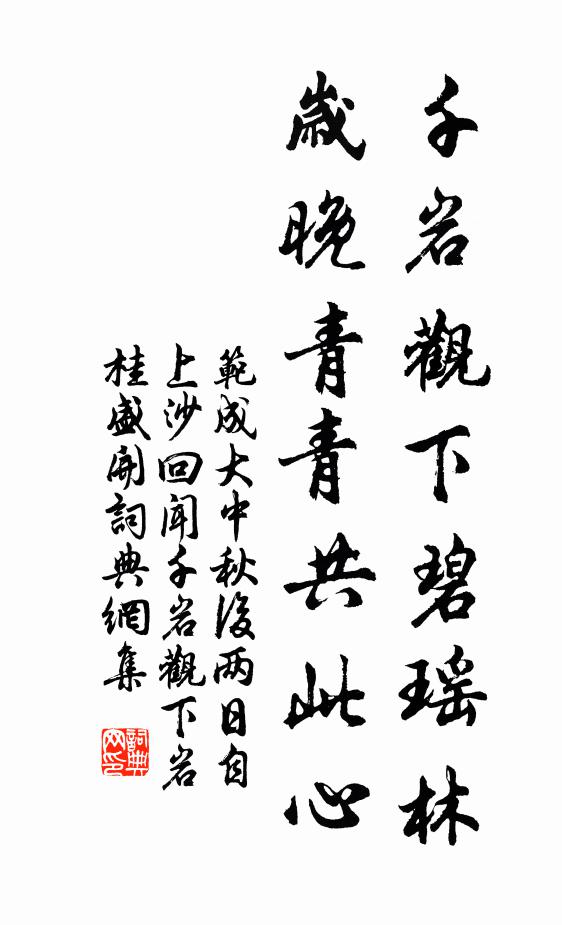 千岩觀下碧瑶林
歲晚青青共此心
範成大中秋後两日自
上沙回聞千岩觀下岩
桂盛開詞典網集
詞典
网印